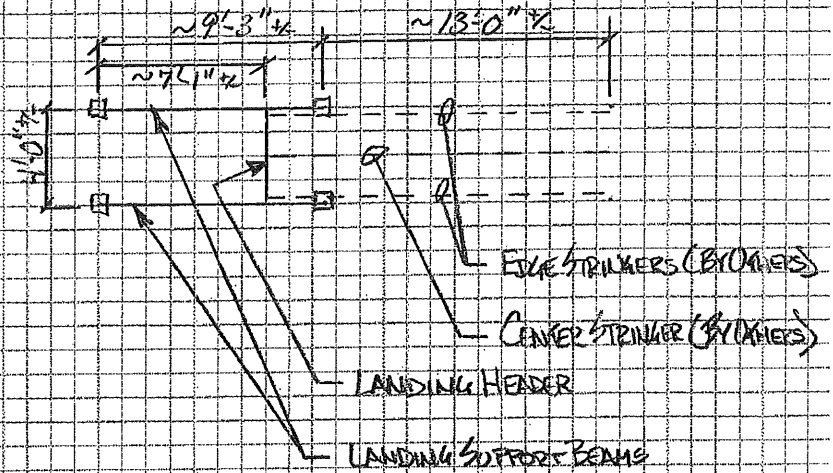 ~9'-3" +/-
~13'-0" +/-
~7'-1" +/-
4'-0" +/-
EDGE STRINGERS (BY OTHERS)
CENTER STRINGER (BY OTHERS)
LANDING HEADER
LANDING SUPPORT BEAMS